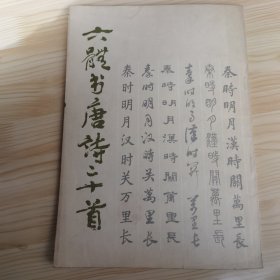 六體书唐詩二十首
秦時明月漢時關萬里長
秦時明月漢時關萬里長
秦時明月漢時關萬里長
秦時明月漢時關萬里長
秦時明月漢時關萬里長
秦時明月汉时关万里长